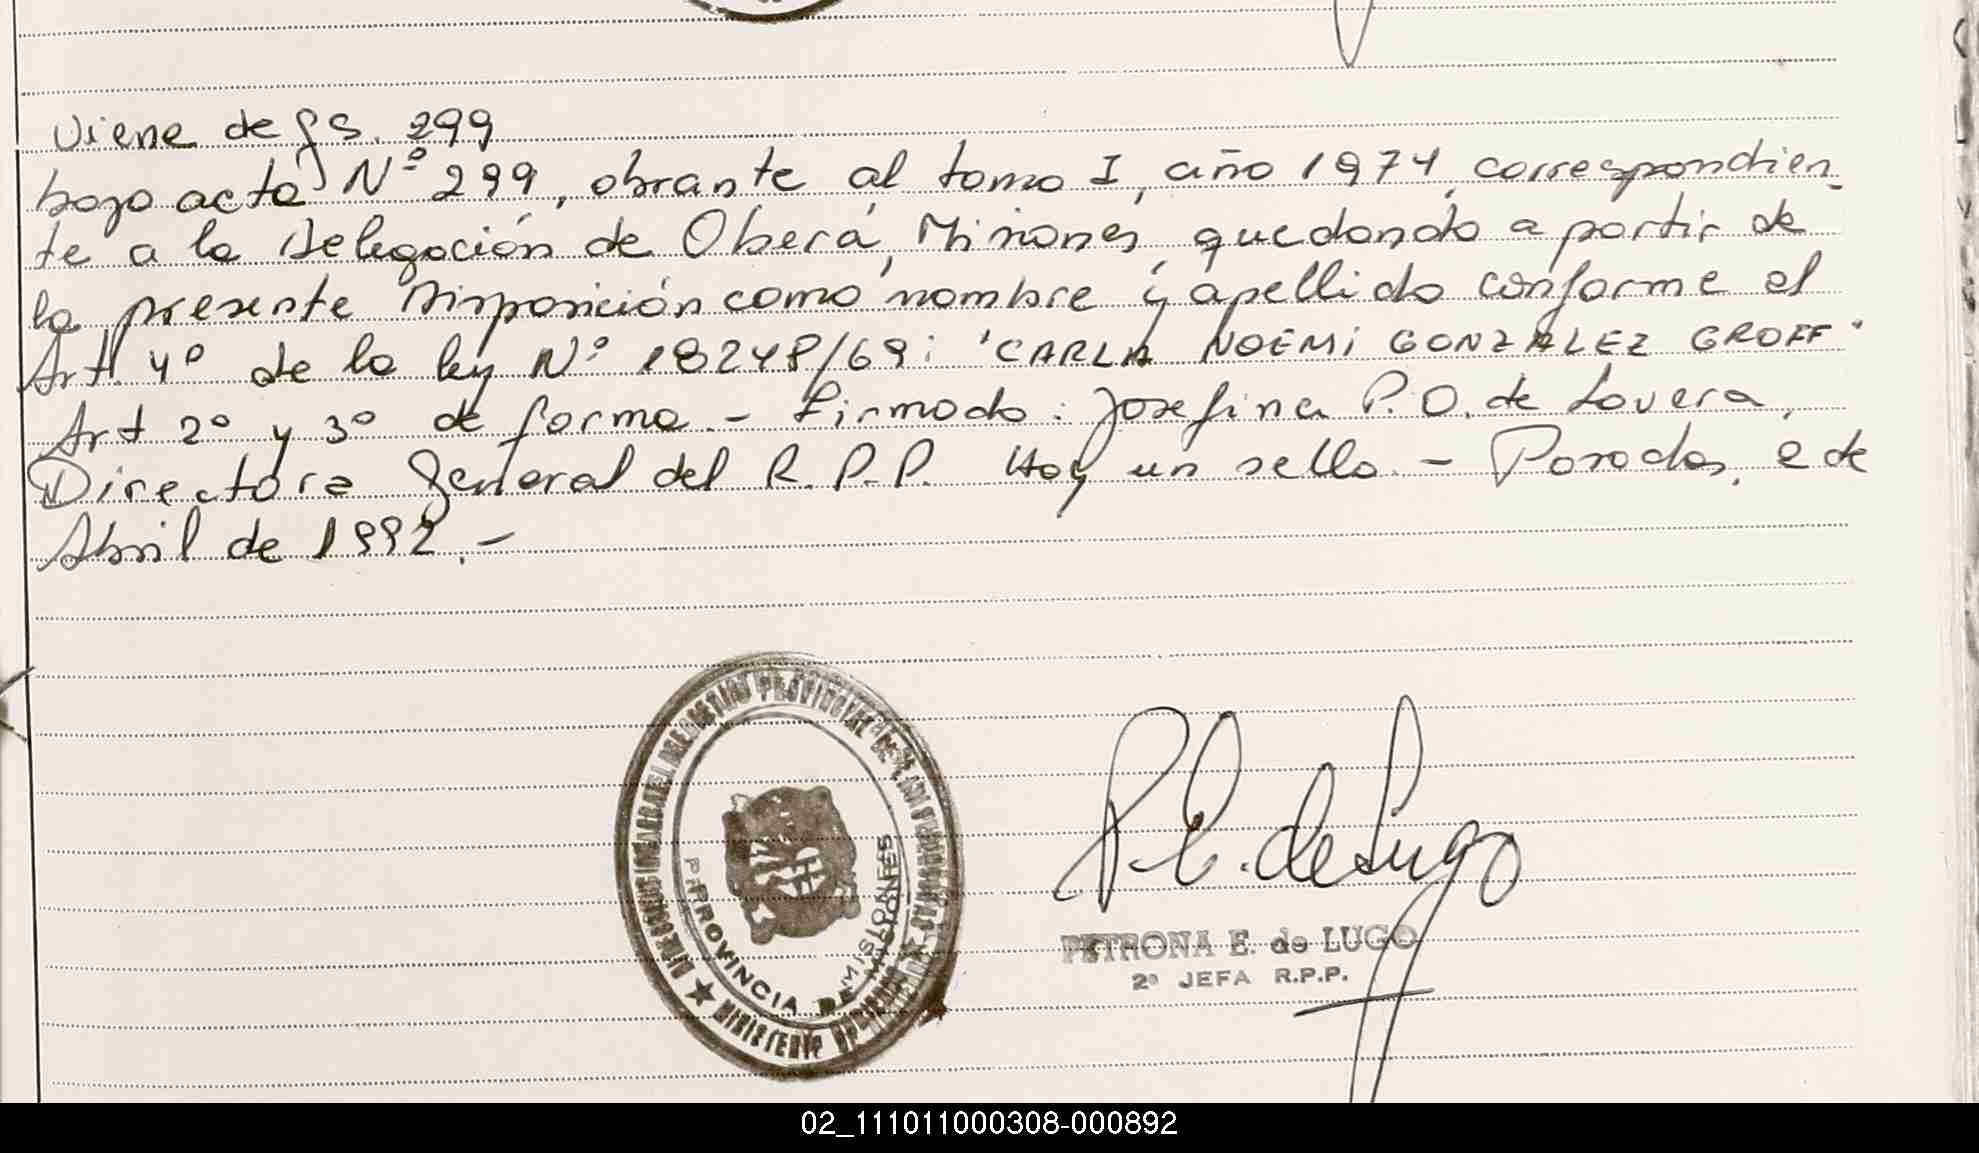 Viene de fs. 299
bajo acta Nº 299, obrante al tomo I, año 1974, correspondien_
te a la Delegación de Oberá, Misiones, quedando a partir de
la presente Disposición como nombre y apellido conforme el
Art. 4º de la ley Nº 18248/69: "CARLA NOEMI GONZALEZ GROFF"
Art 2º y 3º de forma.- Firmado: Josefina P.O. de Lovera,
Directora General del R.P.P. Hay un sello.- Posadas, 2 de
Abril de 1992.-
P.E. de Lugo
PROVINCIA DE MISIONES
PETRONA E. de LUGO
2º JEFA R.P.P.
02_111011000308-000892